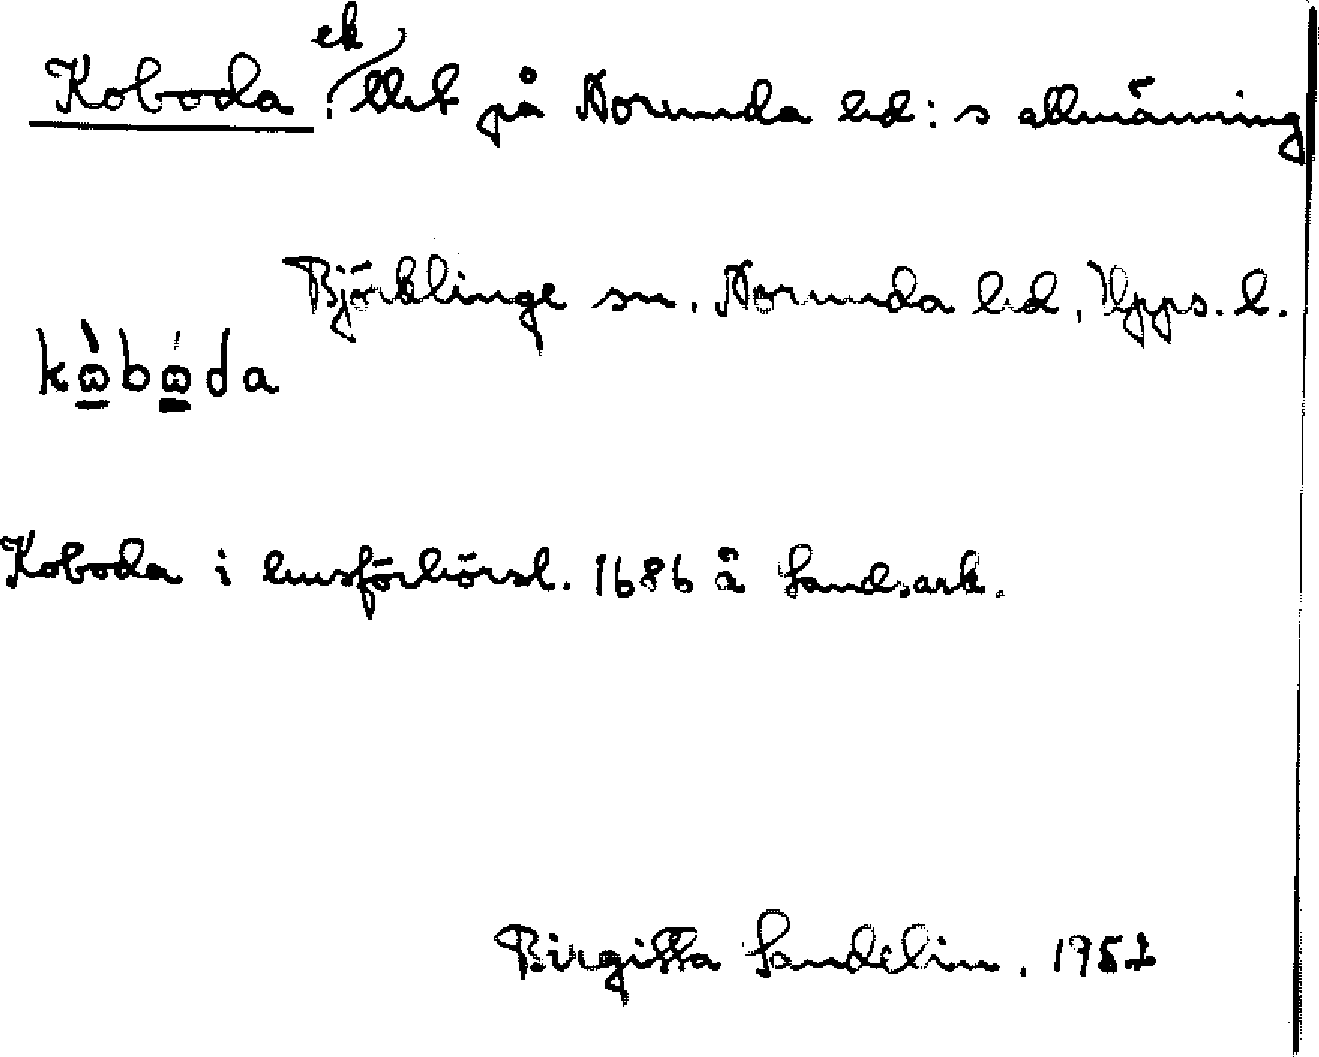 ek
Koboda. Utet på Norunda hd:s allmänning
Björklinge sn. Norunda hd, Upps. l.
kὼbώda
Koboda i husförhörsl. 1686 å Landsark.
Birgitta Sandelin. 195